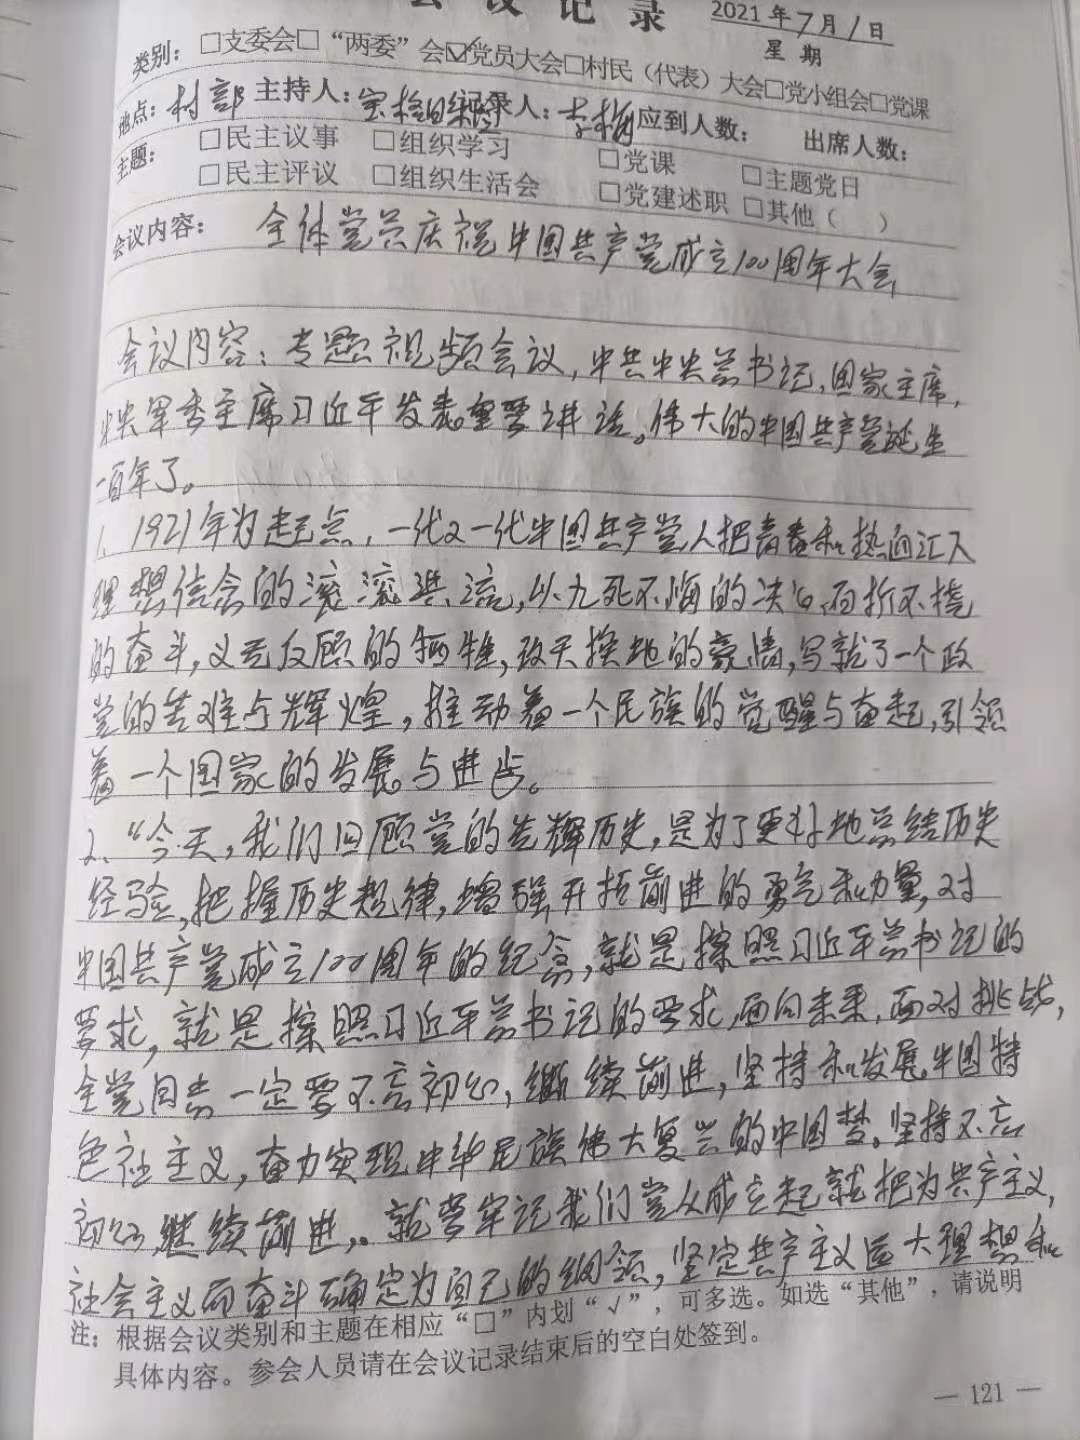 会议记录
2021年7月1日
星期
类别：□支委会□“两委”会☑党员大会□村民（代表）大会□党小组会□党课
地点：村部 主持人： 记录人：李梅 应到人数： 出席人数：
主题：□民主议事 □组织学习 □党课 □主题党日
□民主评议 □组织生活会 □党建述职 □其他（ ）
会议内容： 全体党员庆祝中国共产党成立100周年大会
会议内容：专题视频会议，中共中央总书记，国家主席，
中央军委主席习近平发表重要讲话。伟大的中国共产党诞生
一百年了。
1、1921年为起点，一代又一代中国共产党人把青春和热血汇入
理想信念的滚滚洪流，以九死不悔的决心，百折不挠
的奋斗，义无反顾的牺牲，改天换地的豪情，写就了一个政
党的苦难与辉煌，推动着一个民族的觉醒与奋起，引领
着一个国家的发展与进步。
2、“今天，我们回顾党的光辉历史，是为了更好地总结历史
经验，把握历史规律，增强开拓前进的勇气和力量，对
中国共产党成立100周年的纪念，就是按照习近平总书记的
要求，就是按照习近平总书记的要求，面向未来，面对挑战，
全党同志一定要不忘初心，继续前进，坚持和发展中国特
色社主义，奋力实现中华民族伟大复兴的中国梦。坚持不忘
初心，继续前进，。就要牢记我们党从成立起就把为共产主义，
社会主义而奋斗确定为自己的纲领，坚定共产主义远大理想和
注：根据会议类别和主题在相应“□”内划“√”，可多选。如选“其他”，请说明
具体内容。参会人员请在会议记录结束后的空白处签到。
— 121 —